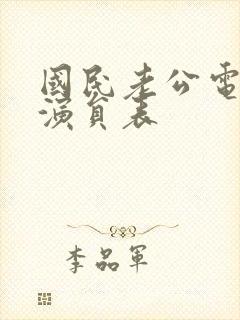 國民老公電
演員表
李品軍